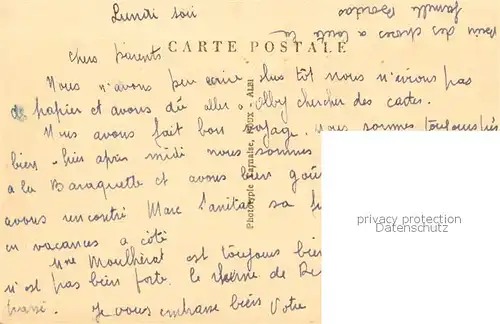 Lundi soir
bien des choses a toute la
famille Bordas
chers parents
CARTE POSTALE
Nous n'avons peu ecrire plus tôt nous n'avions pas
de papier et avons dû aller a Alby chercher des cartes.
Nous avons fait bon voyage. Nous sommes toulouse
bien - hier après midi nous sommes
a la Baraquette et avons bien goû
avons rencontré Marc sa
en vacances a côté
Mme Moulherat est toujours bien
n'est pas bien forte. le de
passé. Je vous embrasse bien Votre
Phototypie Larnaise, POUX - ALBI
privacy protection
Datenschutz